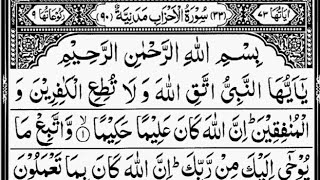 اٰیَاتُهَا ٧٣ (٣٣) سُوْرَةُ الْاَحْزَابِ مَدَنِیَّةٌ (٩٠) رُكُوْعَاتُهَا ٩
بِسْمِ اللّٰهِ الرَّحْمٰنِ الرَّحِیْمِ
یٰۤاَیُّهَا النَّبِیُّ اتَّقِ اللّٰهَ وَ لَا تُطِعِ الْكٰفِرِیْنَ وَ
الْمُنٰفِقِیْنَؕ اِنَّ اللّٰهَ كَانَ عَلِیْمًا حَكِیْمًا ۙ﴿١﴾ وَّ اتَّبِعْ مَا
یُوْحٰۤی اِلَیْكَ مِنْ رَّبِّكَؕ اِنَّ اللّٰهَ كَانَ بِمَا تَعْمَلُوْنَ